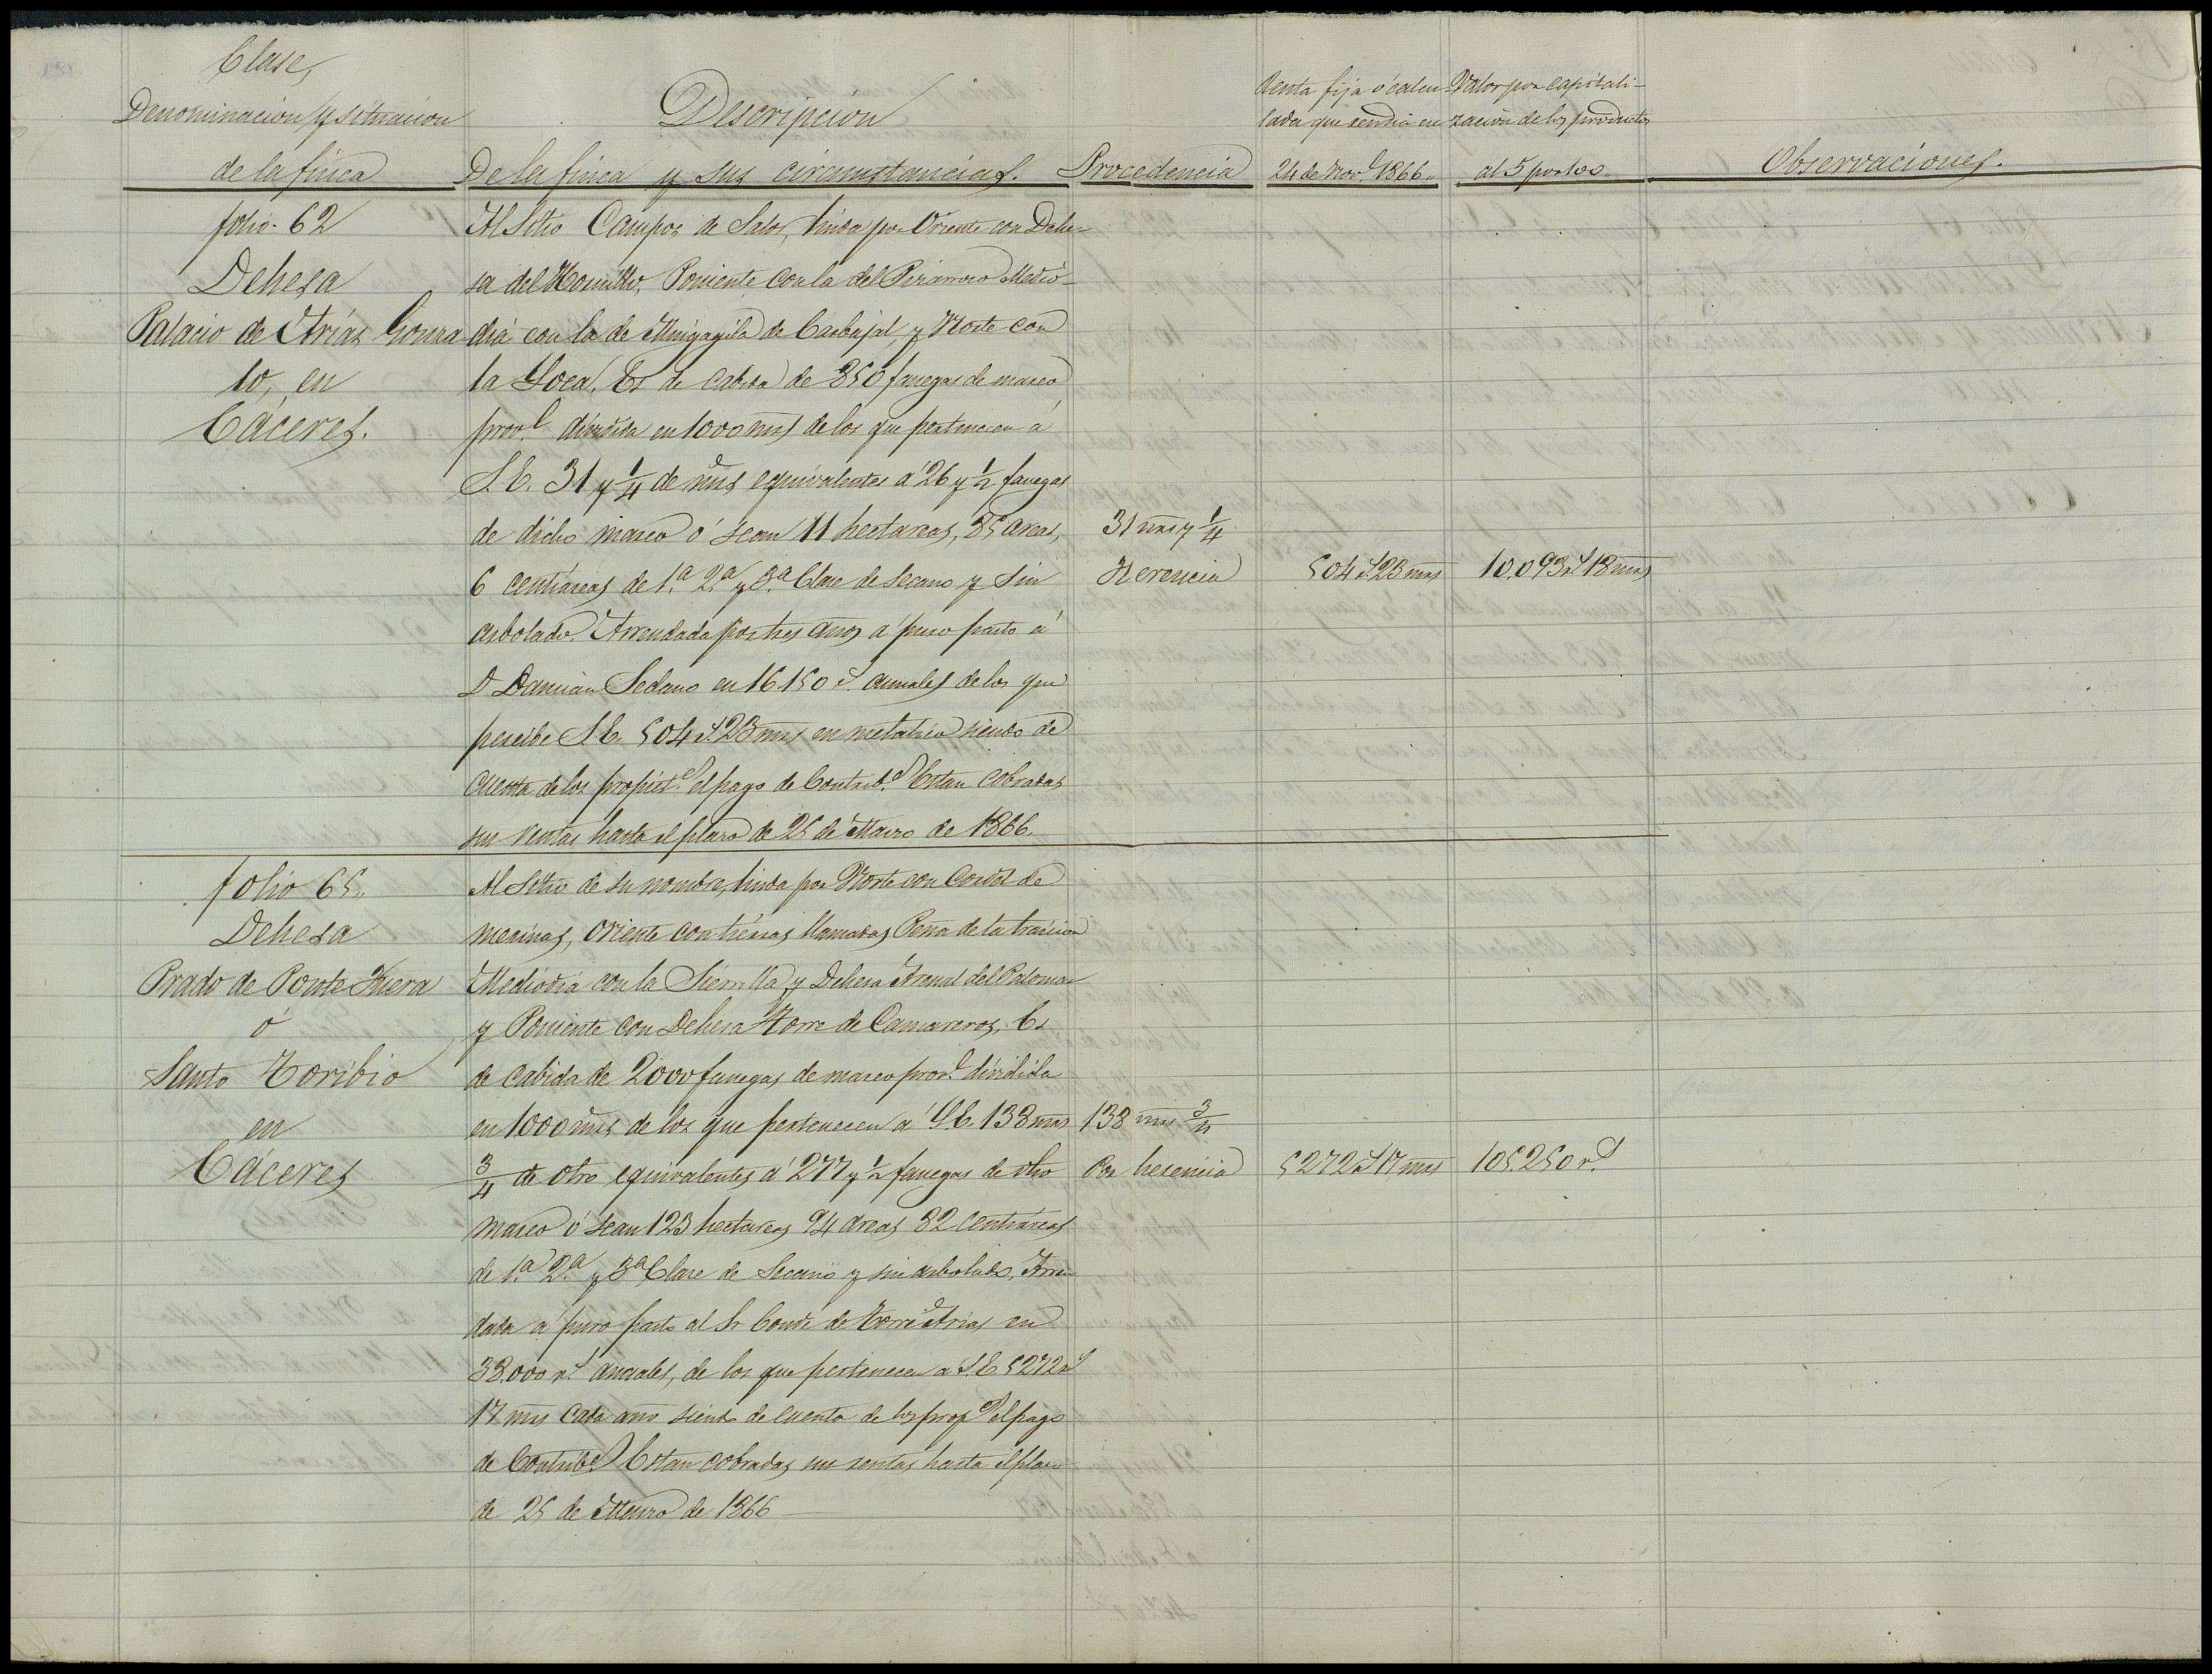 Clase,
Denominacion y situacion
de la finca
Descripcion
De la finca y sus circunstancias.
Procedencia
Renta fija ó calcu-
lada que rendia en
24 de Nov.e 1866.
Valor por capitali-
zacion de los productos
al 5 por 100.
Observaciones.
folio. 62
Dehesa
Palacio de Arias Gonza
lo, en
Cáceres.
Al Sitio Campos de Salor, linda por Oriente con Dehe-
sa del Hornillo, Poniente con la del Pizarroso Medio-
dia con la de Mingagila de Carbajal, y Norte con
la Loca. Es de Cabida de 850 fanegas de marco
prov.l dividida en 1000 mrs de los que pertenecen á
S.E. 31 y 1/4 de mrs equivalentes á 26 y 1/2 fanegas
de dicho marco ó sean 11 hectareas, 85 areas,
6 centiareas de 1.a 2.a y 3.a Clase de Secano y sin
arbolado. Arrendada por tres años á puro pasto á
D Damian Sedano en 16.150 r.s anuales de los que
percibe S.E. 504 r.s 23 mrs en metalico siendo de
cuenta de los propiet.s el pago de Contrib.s Estan Cobradas
sus rentas hasta el plazo de 25 de Marzo de 1866.
31 mrs y 1/4
Herencia
504 r.s 23 mrs
10.093 r.s 18 mrs
folio 65.
Dehesa
Prado de Ponte Fuera
ó
Santo Toribio
en
Cáceres
Al Sitio de su nombre, linda por Norte con Cordel de
merinas, Oriente con tierras llamadas Peña de la traicion
Mediodia con la Sierrilla y Dehesa Arenal del Palomar
y Poniente con Dehesa Torre de Camareros, Es
de Cabida de 2000 fanegas de marco prov.l dividida
en 1000 mrs de los que pertenecen á S.E. 138 mrs
3/4 de otro equivalentes á 277 y 1/2 fanegas de dho
marco ó sean 123 hectareas 94 areas 32 centiareas
de 1.a 2.a y 3.a Clase de Secano y sin arbolado, Arren
dada á puro pasto al Sr Conde de Torre Arias en
38.000 r.s anuales, de los que pertenecen a S.E. 5272 r.s
17 mrs cada año siendo de cuenta de los prop.s el pago
de Contrib.s Estan cobradas sus rentas hasta el plazo
de 25 de Marzo de 1866
138 mrs 3/4
Por herencia
5272 r.s 17 mrs
105.250 r.s